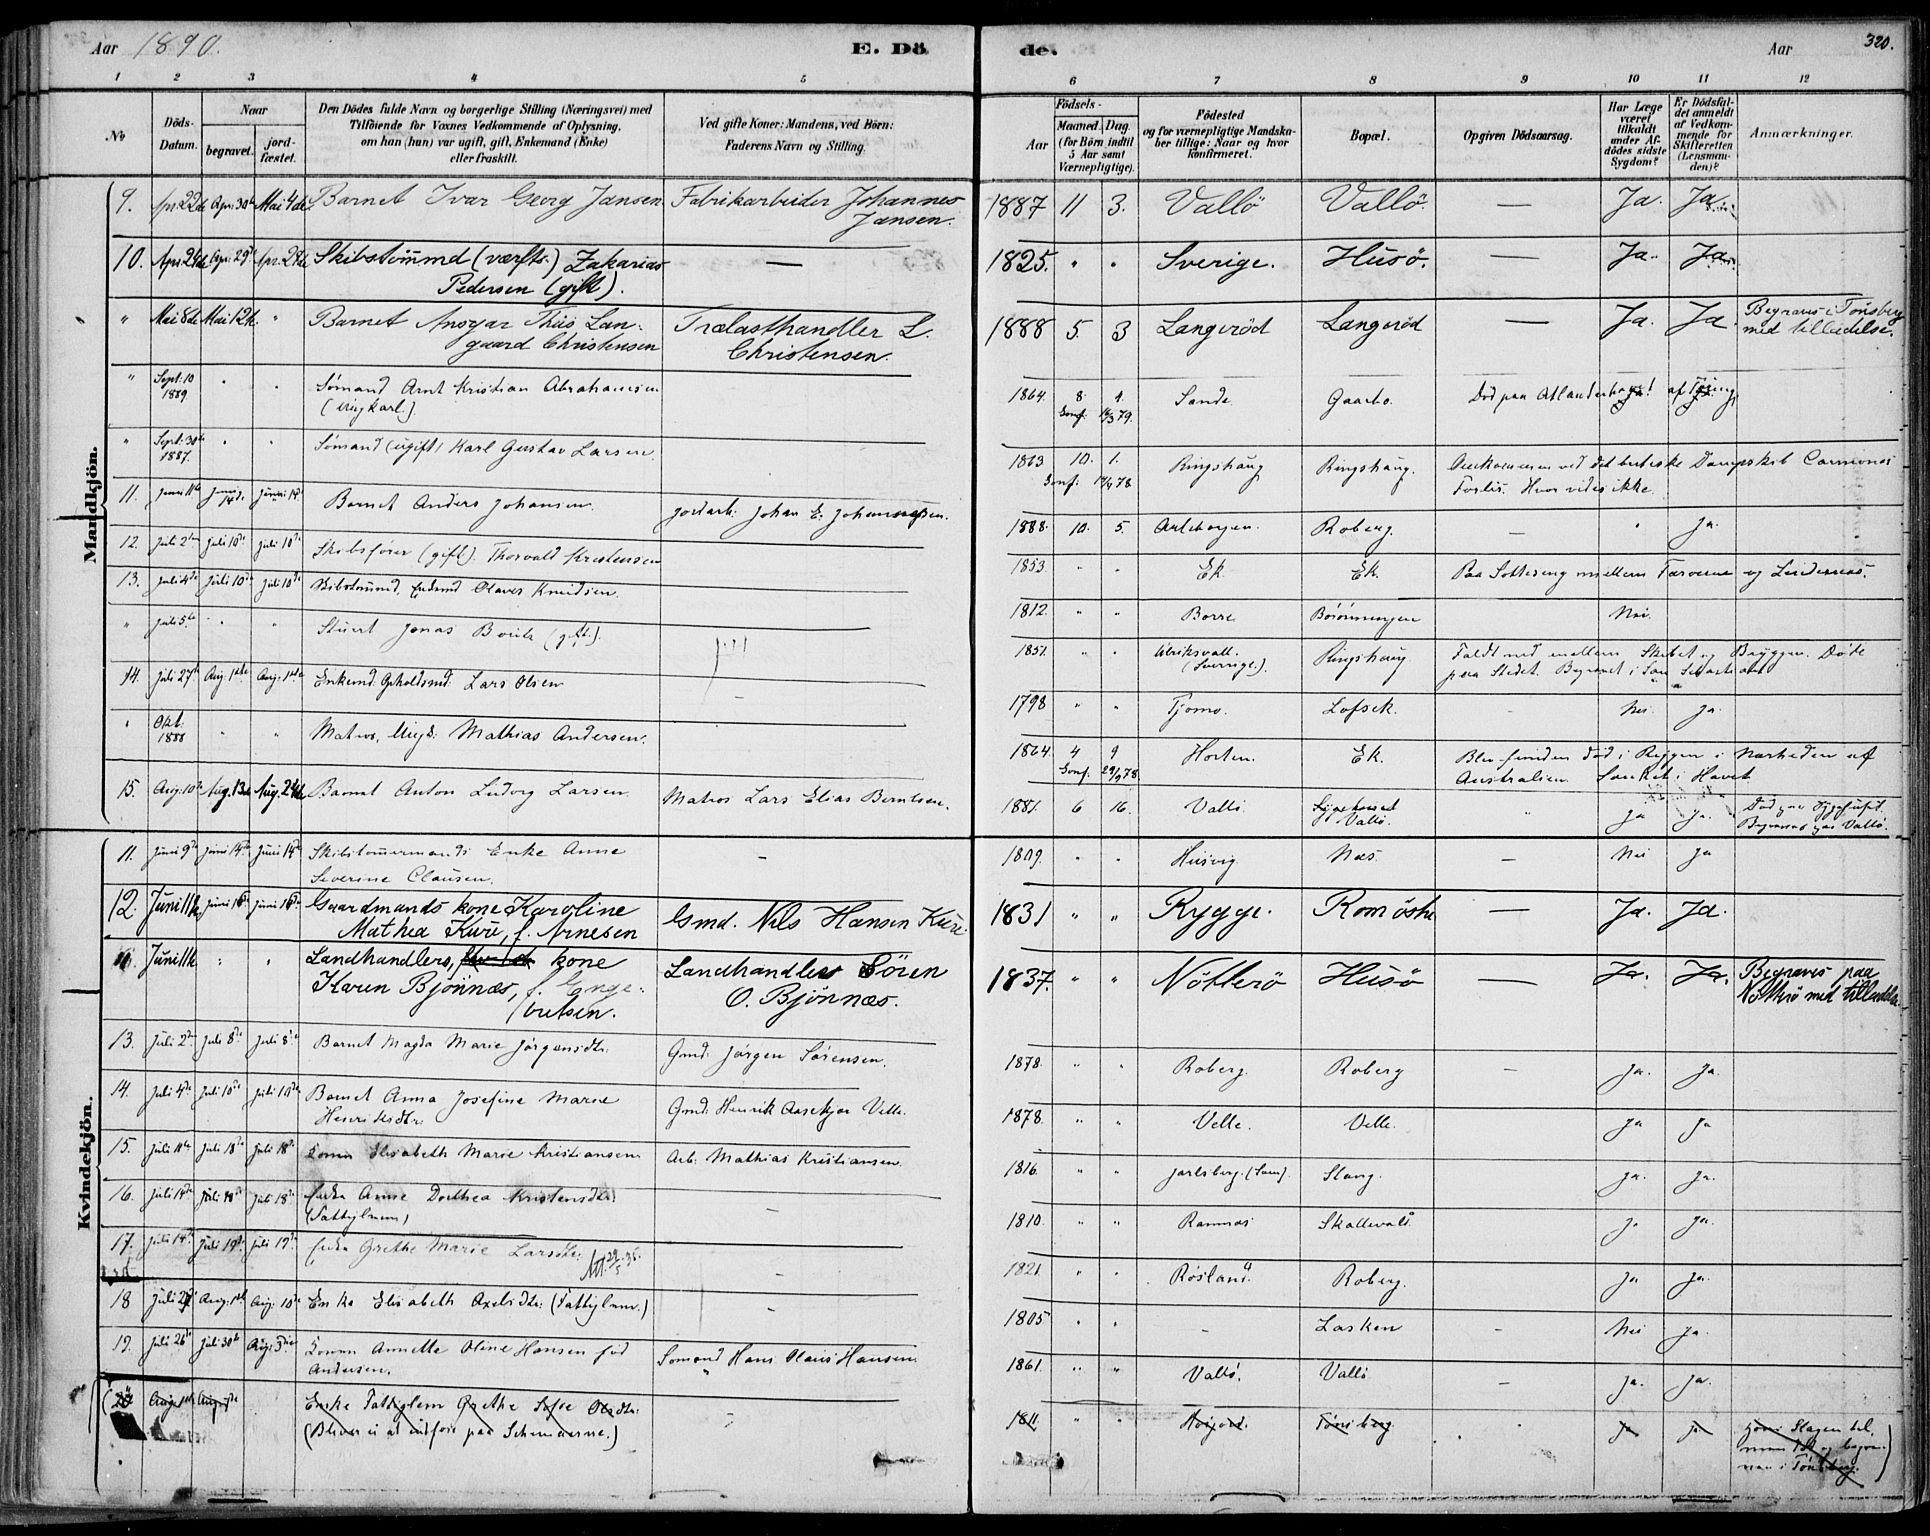 Aar 1890.
E. Dö
de.
Aar
320.
1 2 3 4 5 6 7 8 9 10 11 12
No
Döds-Datum.
Naar
begravet.
jord-fæstet.
Den Dödes fulde Navn og borgerlige Stilling (Næringsvei) med
Tilföiende for Voxnes Vedkommende af Oplysning,
om han (hun) var ugift, gift, Enkemand (Enke)
eller fraskilt.
Ved gifte Koner: Mandens, ved Börn:
Faderens Navn og Stilling.
Födsels-
Aar
Maaned.
Dag.
(for Börn indtil
5 Aar samt
Værnepligtige).
Födested
og for værnepligtige Mandska-
ber tillige: Naar og hvor
konfirmeret.
Bopæl.
Opgiven Dödsaarsag.
Har Læge
været
tilkaldt
under Af-
dödes sidste
Sygdom?
Er Dödsfal-
det anmeldt
af Vedkom-
mende for
Skifteretten
(Lensman-
den)?
Anmærkninger.
Mandkjön.
9. Apr. 22de Apr. 30te Mai 4de Barnet Ivar Georg Jansen Fabrikarbeider Johannes Jansen. 1887 11 3. Vallö Vallö. — Ja. Ja.
10. Apr. 24de Apr. 29de Apr. 29de Skibstömmd (værfts.) Zakarias
Pedersen (gift). — 1825. " " Sverige. Husö. — Ja. Ja.
" Mai 8de Mai 12te " Barnet Ansgar Thiis Lan-
gaard Christensen Trælasthandler L.
Christensen. 1888 5. 3 Langeröd Langeröd — Ja. Ja Begraves i Tönsberg
med tilladelse.
" Sept. 10
1889 " " Sømand Arnt Kristian Abrahamsen
(Ungkarl). 1864. 8. 4.
Conf. 79. Sande Gaarbo. Död paa Atlanterhavet af Tæring
" Sept. 30te
1887. " " Sømand (ugift) Karl Gustav Larsen. 1863 10. 1.
Conf. 78 Ringshaug Ringshaug. Omkommen ved det britiske Dampskib
Forlis. Hvor vides ikke.
11. Juni 11te Juni 14de Juni 14de Barnet Anders Johansen. Jordarb. Johan E. Johannesen. 1888. 10. 5. Roberg. — " Ja.
12. Juli 2den Juli 10de Juli 10de Skibsfører (gift). Thorvald Kristensen 1853. " " Ek. Ek. Paa Seilads mellem Færøerne og Lindesnæs.
13. Juli 4de Juli 10de Juli 10de Skibstømmd. Enkemd Olaves Knudsen. 1812. " " Borre Nei.
" Juli 5te " " Stuert Jonas (gift). 1851. " " Ulriksvall.
(Sverrige). Ringshaug Faldt ned mellem Skibet og Bryggen. Döde
paa Stedet. Begravet i San
14. Juli 27de Aug. 1ste Aug. 1ste Enkemd. Opholdsmd. Lars Olsen — 1798 " " Tjømø. Lofsek. — Nei. Ja.
" Okt.
1888 " " Matros, Ungk. Mathias Andersen. 1864. 4 9
Conf. 29/9 78. Horten. Ek. Blev funden död i Ryggen i Nærheden af
Australien. Sænket i Havet
15. Aug. 10de Aug. 13de Aug. 24de Barnet Anton Ludvig Larsen. Matros Lars Elias Berntsen. 1881. 6 16. Vallö. Sygehuset
Vallö. " Ja Ja. Död paa Sygehuset.
Begraves paa Vallö.
Kvindekjön.
11. Juni 9de Juni 14de Juni 14de Skibstømmermands Enke Anne
Severine Clausen. — 1809. " " Husvig Næs. — Nei Ja
12. Juni 11te Juni 16de Juni 16de Gaardmands kone Karoline
Mathea Kure, f. Arnesen Gmd. Nils Hansen Kure. 1831 " " Rygge. Romöstr — Ja. Ja.
Juni 11te " " Landhandlers, kone
Karen Bjönnæs, f. Enge-
bretsen. Landhandler Sören
O. Bjönnæs. 1837. " " Nötterö Husö — Ja. Ja. Begraves paa
Nötterö med tilladelse.
13. Juli 2den Juli 8de Juli 8de Barnet Magda Marie Jørgensdtr. Gmd. Jørgen Sørensen. 1878. " " Roberg. Roberg — Ja. Ja.
14. Juli 4de Juli 10de Juli 10de Barnet Anna Josefine Marie
Henriksdtr. Gmd. Henrik Aasekjær Velle. 1878. " " Velle. Velle. Ja Ja
15. Juli 11te Juli 18de Juli 18de Konen Elisabeth Marie Kristiansen Arb. Mathias Kristiansen. 1816. " " Jarlsberg. (Sem). Slang. Ja. Ja.
16. Juli 14de Juli 18de Juli 18de Enke Anne Dorthea Kristensdtr.
(Fattiglem) — 1810. " " Ramnæs Skallevald Ja Ja.
17. Juli 14de Juli 19de Juli 19de Enke Grethe Marie Larsdtr. Att. 29/5 35. — 1821. " " Røsland. Roberg. Ja Ja.
18 Juli 27 Aug. 1ste Aug. 10de Enke Elisabeth Axelsdtr. (Fattiglem.) — 1805 " " — Lasken — Nei Ja.
19. Juli 26de Juli 30te Aug. 3die Konen Annette Oline Hansen fød
Andersen. Sømand Hans Olaus Hansen. 1861. " " Vallö. Vallö — Ja. Ja.
(20 Aug. 1ste Aug. Enke Fattiglem Grethe Sofie Olsdtr.
(Bliver ei at indføre paa Schemaerne.) — 1811. " " Tönsberg Ja Ja. Slagen til.
i Tönsberg.)